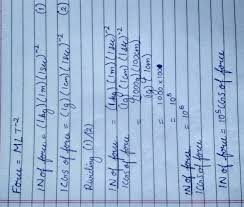 Force = MLT⁻²
1N of force = (1kg)(1m)(1sec)⁻² (1)
1 CGS of force = (1g)(1cm)(1sec)⁻² (2)
Dividing (1)(2)
1N of force = (1kg)(1m)(1sec)⁻²
1 CGS of force (1g)(1cm)(1sec)⁻²
= (1000g)(100cm)
(1g)(1cm)
= 1000 × 100
= 10⁵
1N of force = 10⁵
1 CGS of force
1N of force = 10⁵ CGS of force